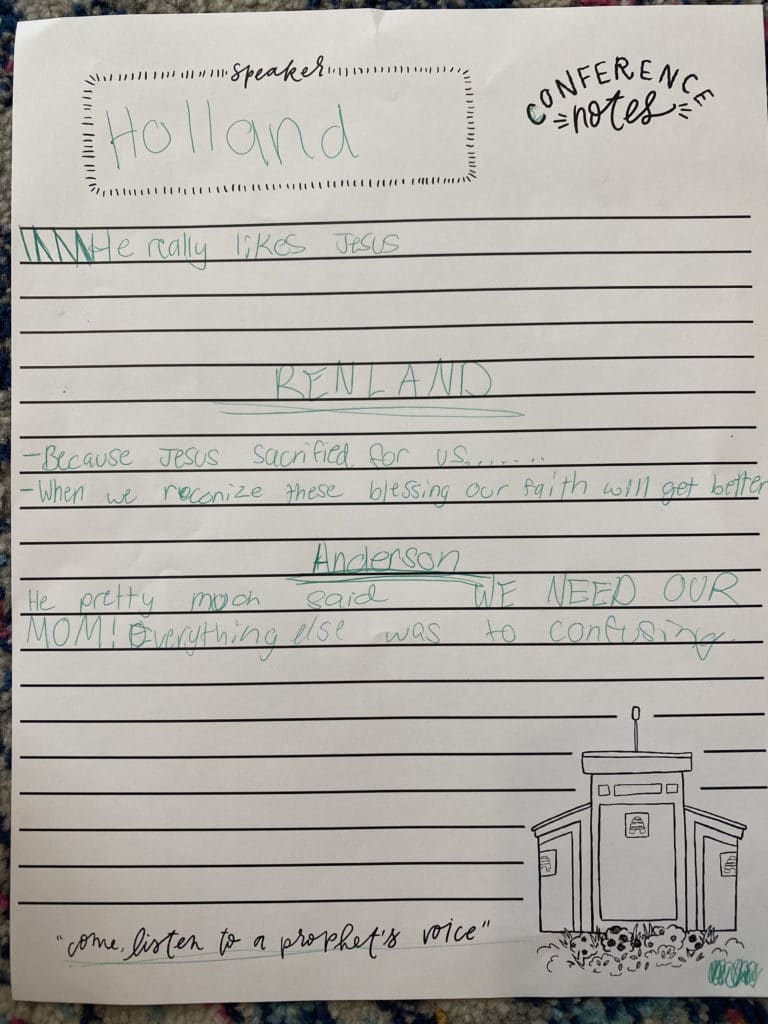 speaker
CONFERENCE
notes
Holland
He really likes Jesus
RENLAND
-Because Jesus sacrified for us.......
-When we reconize these blessing our faith will get better
Anderson
He pretty moch said WE NEED OUR
MOM! Everything else was to confusing
"come, listen to a prophet's voice"